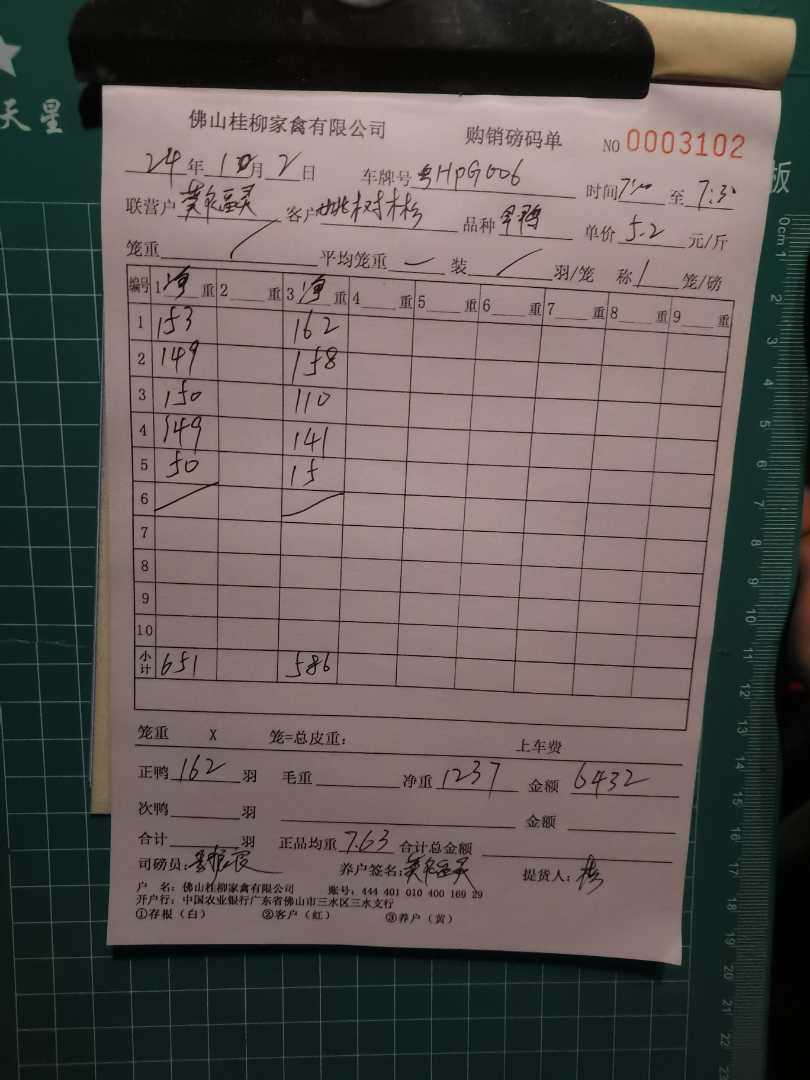 天星
板
佛山桂柳家禽有限公司 购销磅码单 NO 0003102
24年10月2日 车牌号 粤HPG006 时间 7:10 至 7:30
联营户 客户 姚树彬 品种 单价 5.2 元/斤
笼重 / 平均笼重 — 装 / 羽/笼 称 1 笼/磅
编号 1 净 重 2 重 3 净 重 4 重 5 重 6 重 7 重 8 重 9 重
1 153 162
2 149 158
3 150 110
4 149 141
5 50 15
6 / /
7
8
9
10
小计 651 586
笼重 X 笼=总皮重: 上车费
正鸭 162 羽 毛重 净重 1237 金额 6432
次鸭 羽 金额
合计 羽 正品均重 7.63 合计总金额
司磅员: 养户签名: 提货人: 彬
户 名: 佛山桂柳家禽有限公司 账号: 444 401 010 400 169 29
开户行: 中国农业银行广东省佛山市三水区三水支行
①存根(白) ②客户(红) ③养户(黄)
0cm 1 2 3 4 5 6 7 8 9 10 11 12 13 14 15 16 17 18 19 20 21 22 23